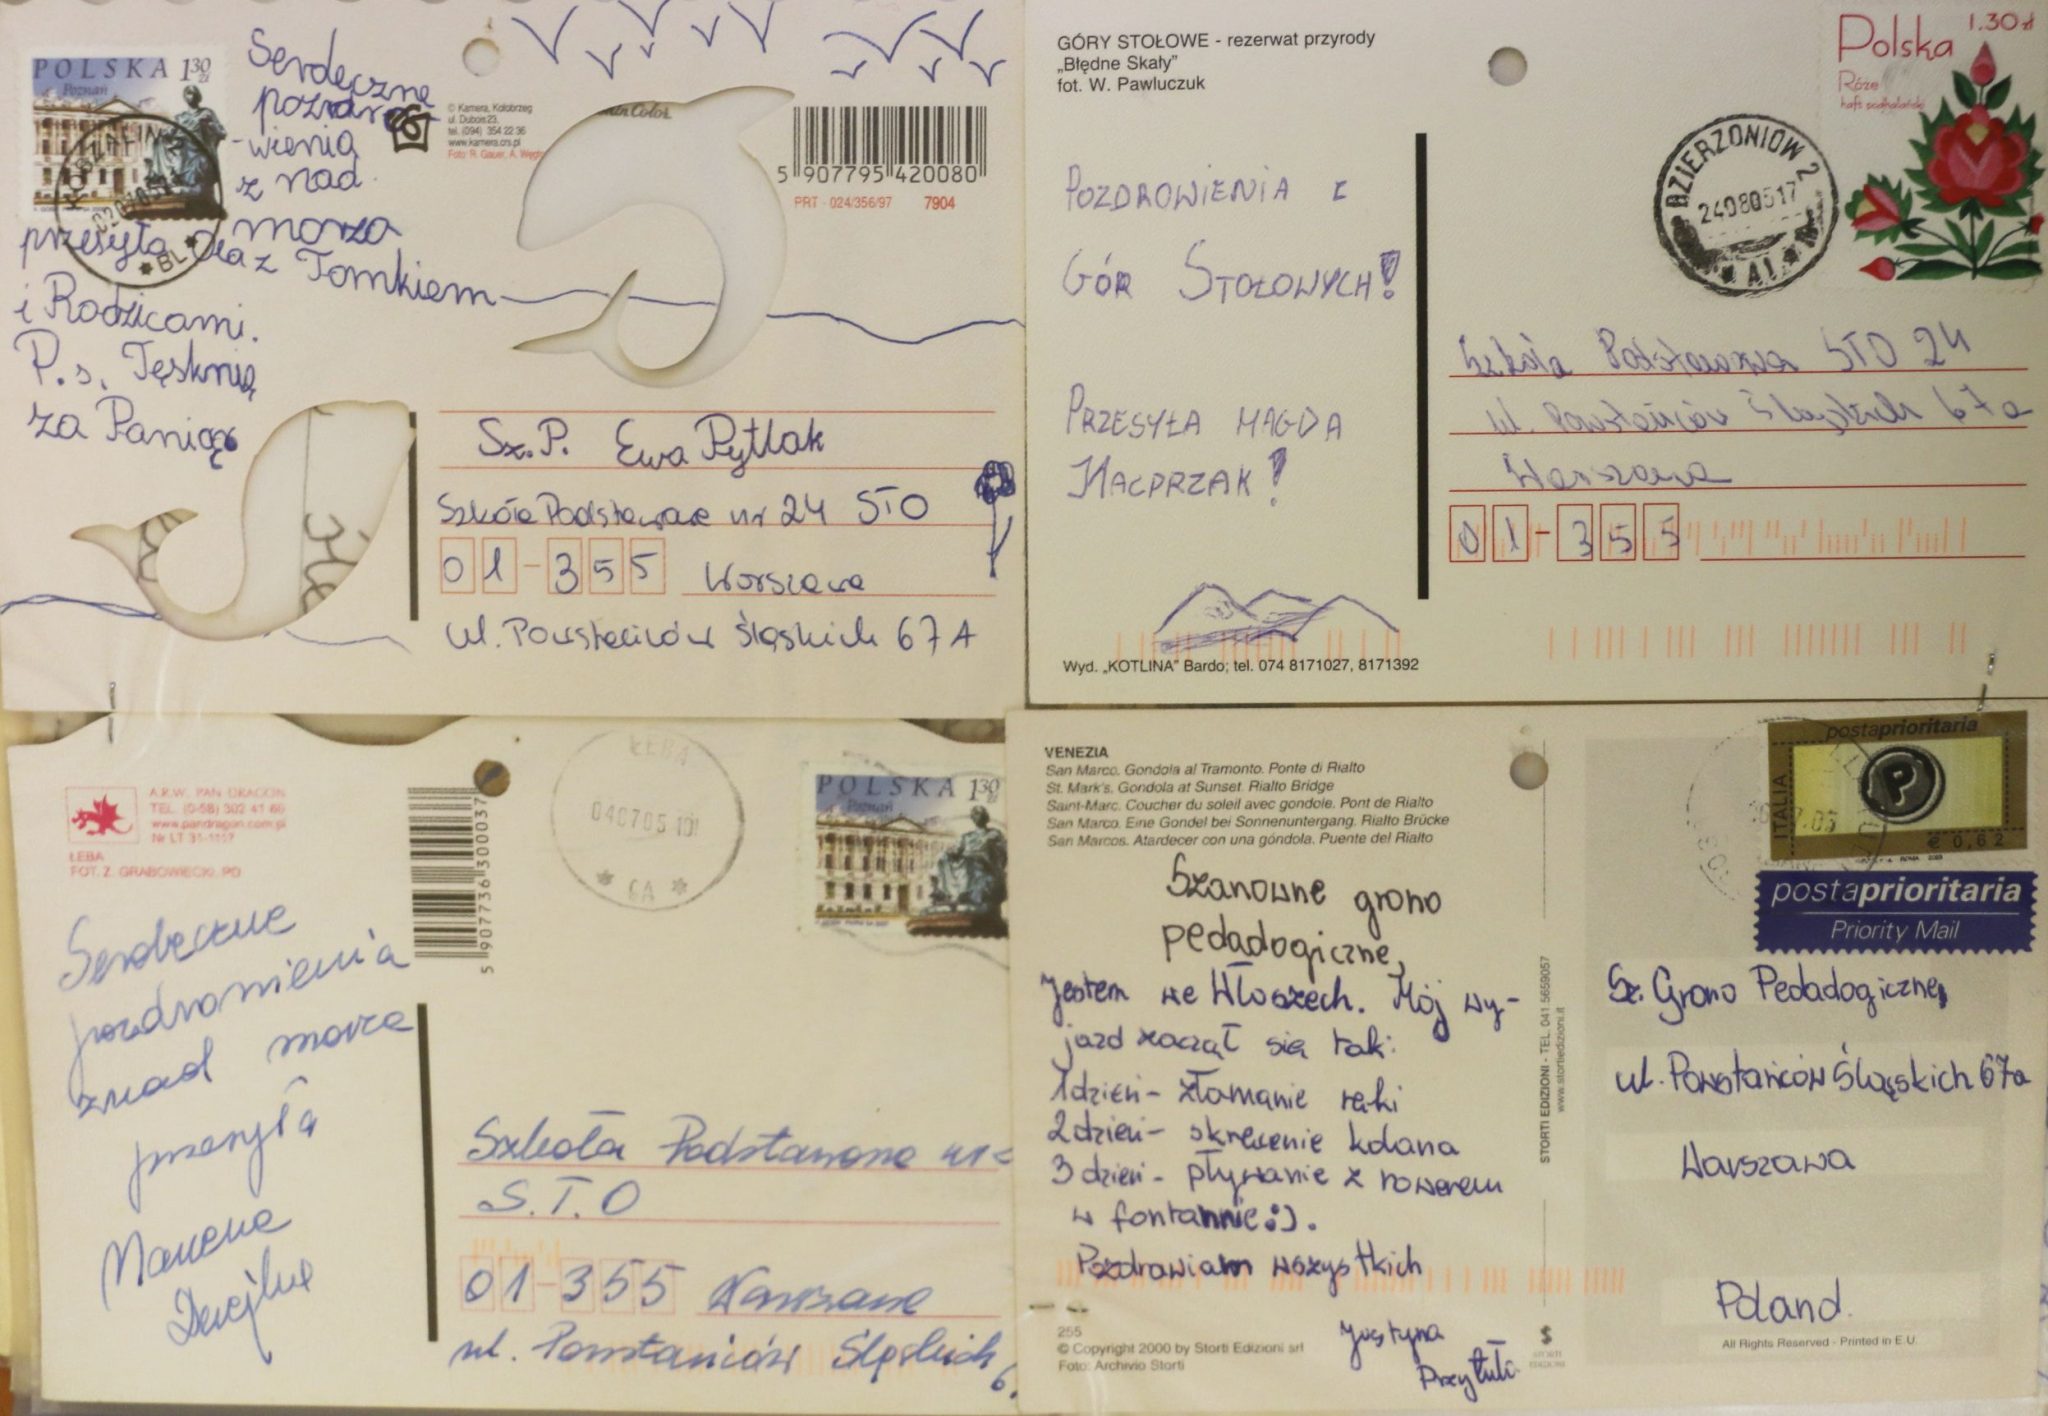 POLSKA 1 30 zł
Poznań
Serdeczne
pozdro
-wienia
z nad
morza
przesyła Ola z Tomkiem
i Rodzicami.
P.s. Tęsknię
za Panią
© Kamera, Kołobrzeg
ul. Dubois 23,
tel. (094) 354 22 36
www.kamera.crs.pl
Foto: R. Gauer, A.
Color
5 907795 420080
PRT - 024/356/97 7904
Sz. P. Ewa Pytlak
Szkoła Podstawowa nr 24 STO
01-355 Warszawa
ul. Powstańców Śląskich 67A
GÓRY STOŁOWE - rezerwat przyrody
„Błędne Skały”
fot. W. Pawluczuk
POZDROWIENIA Z
GÓR STOŁOWYCH!
PRZESYŁA MAGDA
KACPRZAK!
Wyd. „KOTLINA” Bardo; tel. 074 8171027, 8171392
Polska 1.30 zł
Róże
haft podhalański
DZIERŻONIÓW 2
24080517
*A1*
Szkoła Podstawowa STO 24
ul. Powstańców Śląskich 67a
Warszawa
01-355
A.R.W. PAN DRAGON
TEL. (0-58) 302 41 60
www.pandragon.com.pl
ŁEBA
FOT. Z. GRABOWIECKI, PD
5 907736 300037
Serdeczne
pozdrowienia
znad morza
przesyła
Marcena
ŁEBA
040705
* CA *
POLSKA 1 30 zł
Poznań
Szkoła Podstawowa nr
S.T.O
01-355 Warszawa
ul. Powstańców Śląskich
6
VENEZIA
San Marco. Gondola al Tramonto. Ponte di Rialto
St. Mark's. Gondola at Sunset. Rialto Bridge
Saint-Marc. Coucher du soleil avec gondole. Pont de Rialto
San Marco. Eine Gondel bei Sonnenuntergang. Rialto Brücke
San Marcos. Atardecer con una góndola. Puente del Rialto
Szanowne grono
pedadogiczne,
Jestem we Włoszech. Mój wy-
jazd zaczął się tak:
1 dzień - złamanie ręki
2 dzień - skręcenie kolana
3 dzień - pływanie z rowerem
w fontannie :).
Pozdrawiam wszystkich
Justyna
Przytuła
255
© Copyright 2000 by Storti Edizioni srl
Foto: Archivio Storti
STORTI EDIZIONI - TEL. 041.5659057
www.stortiedizioni.it
postaprioritaria
ITALIA
P
€ 0,62
postaprioritaria
Priority Mail
Sz. Grono Pedadogiczne,
ul. Powstańców Śląskich 67a
Warszawa
Poland.
All Rights Reserved - Printed in E.U.